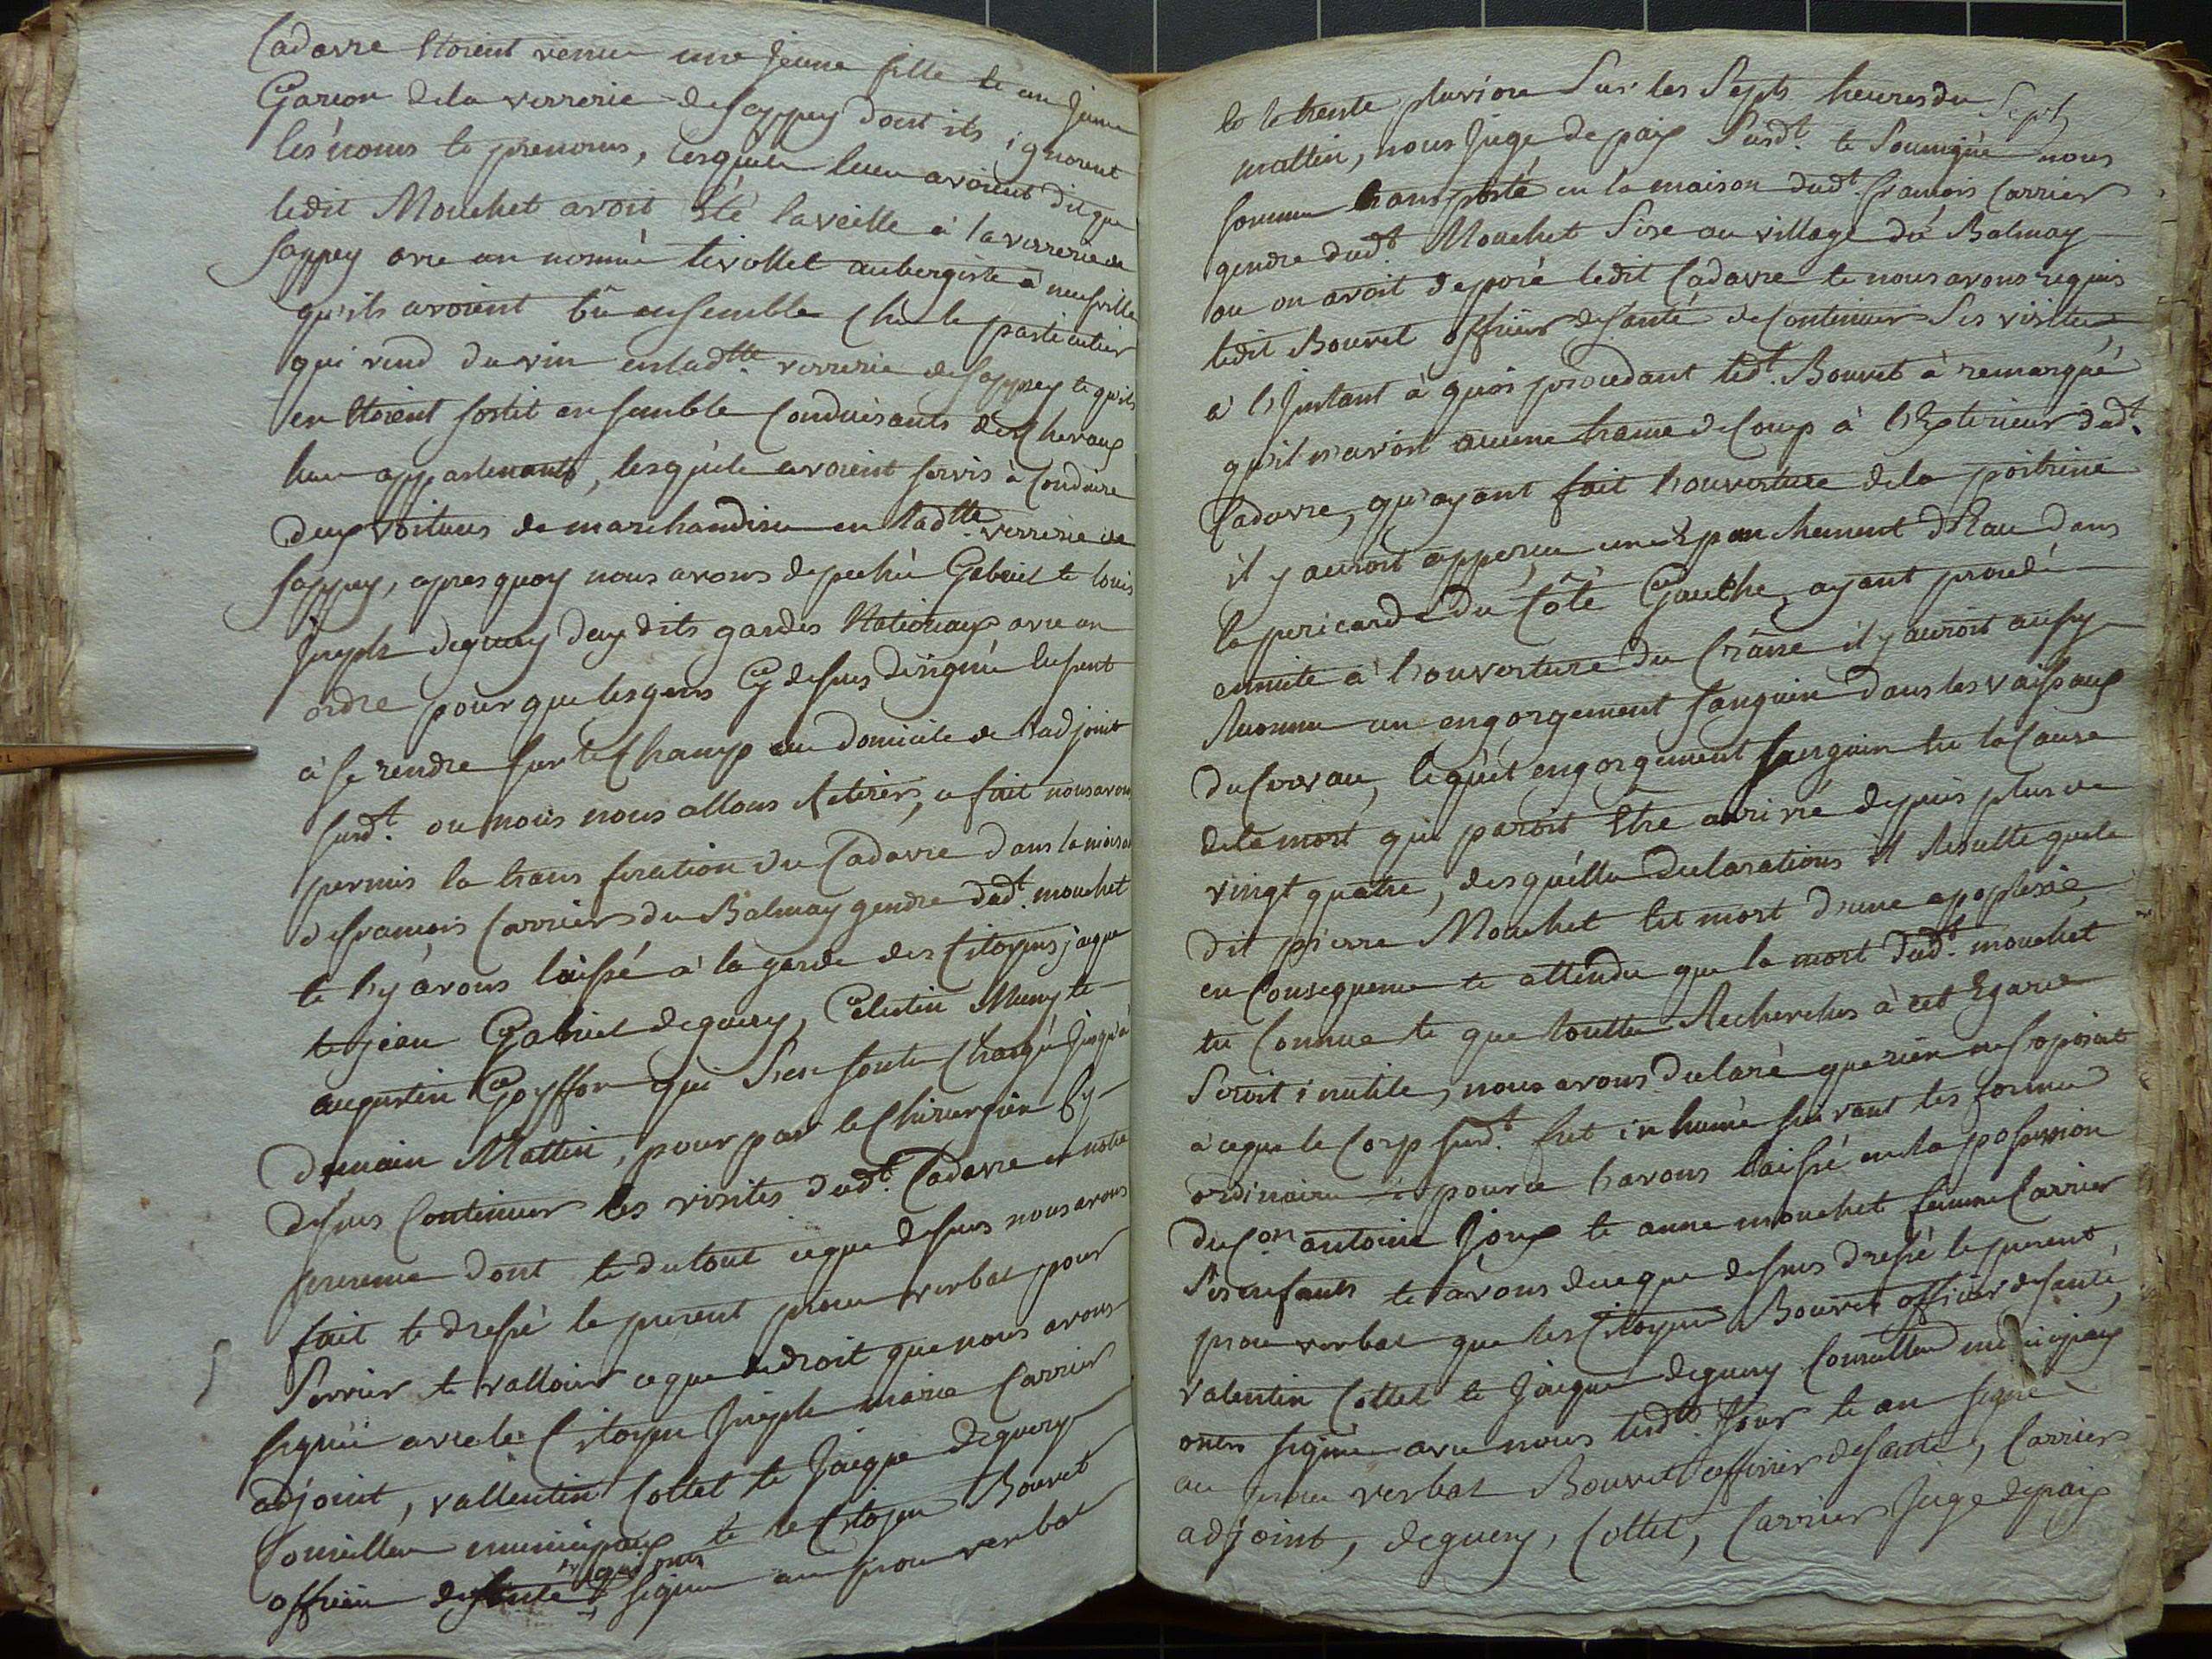 Cadavre Etoient venu une jeune fille et un jeune
Garcon de la verrerie de sappey dont ils ignorent
les noms et prenoms, lesquels leur avoient dit que
ledit Mouchet avoit Eté la veille à la verrerie de
sappey avec un nommé tivollet aubergiste à neufville
qu'ils avoient bû ensemble chez le particulier
qui vend du vin en ladtte. verrerie de sappey et qu'ils
en Etoient sortit ensemble Conduisants des chevaux
leur appartenants, lesquels avoient servis à Conduire
deux voitures de marchandise en ladtte. verrerie de
sappey, apres quoy nous avons depeché Gabriel et louis
Joseph deguery deux dits gardes Nationaux avec un
ordre pour que les gens Cy dessus designé eussent
à se rendre sur le Champ au domicile de l'adjoint
susdt. ou nous nous allons Retirer, ce fait nous avons
permis la trans feration du Cadavre dans la maison
de francois Carrier du Balmay gendre dudt. mouchet
et l'y avons laissé à la garde des Citoyens jacque
et jean Gabriel deguery, Celestin Muny et
augustin Goyffon qui s'en sonts Chargé jusqu'à
demain Mattin, pour par le Chirurgien Cy
dessus Continuer les visites dudt. Cadavre en notre
presence dont et du tout ce que dessus nous avons
fait et dressé le present proces verbal pour
servir et valloir ce que de droit que nous avons
signé avec le Citoyen Joseph marie Carrier
adjoint, vallentin Cottet et Jacque deguery
Conseillers municipaux et le Citoyen Bouvet
officier de santé qui ont signé au proces verbal
Sept
Et le trente pluviose Sur les Septs heures du
mattin, nous Juge de paix Susdt. et Soussigné nous
somme transporté en la maison dudt. francois Carrier
gendre dudt. Mouchet Sise au village du Balmay
ou on avoit deposé ledit Cadavre et nous avons requis
ledit Bouvet officier de santé de Continuer Ses visites
à l'Instant à quoi procedant ledt. Bouvet à remarqué
qu'il n'avoit aucune trame de Coup à l'Exterieur dudt.
Cadavre, qu'ayant fait l'ouverture de la poitrine
il y auroit apperçu un Epanchement d'Eau dans
la pericarde du Côté Gauche, ayant procedé
ensuite à l'ouverture du Crâne il y auroit aussy
Reconnu un engorgement sanguin dans les vaissaux
du Cervau, lequel engorgement sanguin est la Cause
de la mort qui paroit Etre arrivé depuis plus de
vingt quatre, desquelles declarations il Resulte que le
dit pierre Mouchet Est mort d'une apoplexie,
en Consequence et attendu que la mort dudt. mouchet
est Connue et que touttes Recherches à cet Egard
Seroit inutile, nous avons declaré que rien ne s'oposoit
à ce que le Corp susdt. fut inhumé suivant les formes
ordinaire pource l'avons laissé en la possession
du Con. antoine Joux et anne mouchet femme Carrier
Ses enfants et avons de ce que dessus dressé le present
proces verbal que les Citoyens Bouvet officier de santé,
valentin Cottet et Jacque deguery Conseillers municipaux
onts signé avec nous lesdts. Jour et an signé
au proces verbal Bouvet officier de santé, Carrier
adjoint, deguery, Cottet, Carrier Juge de paix